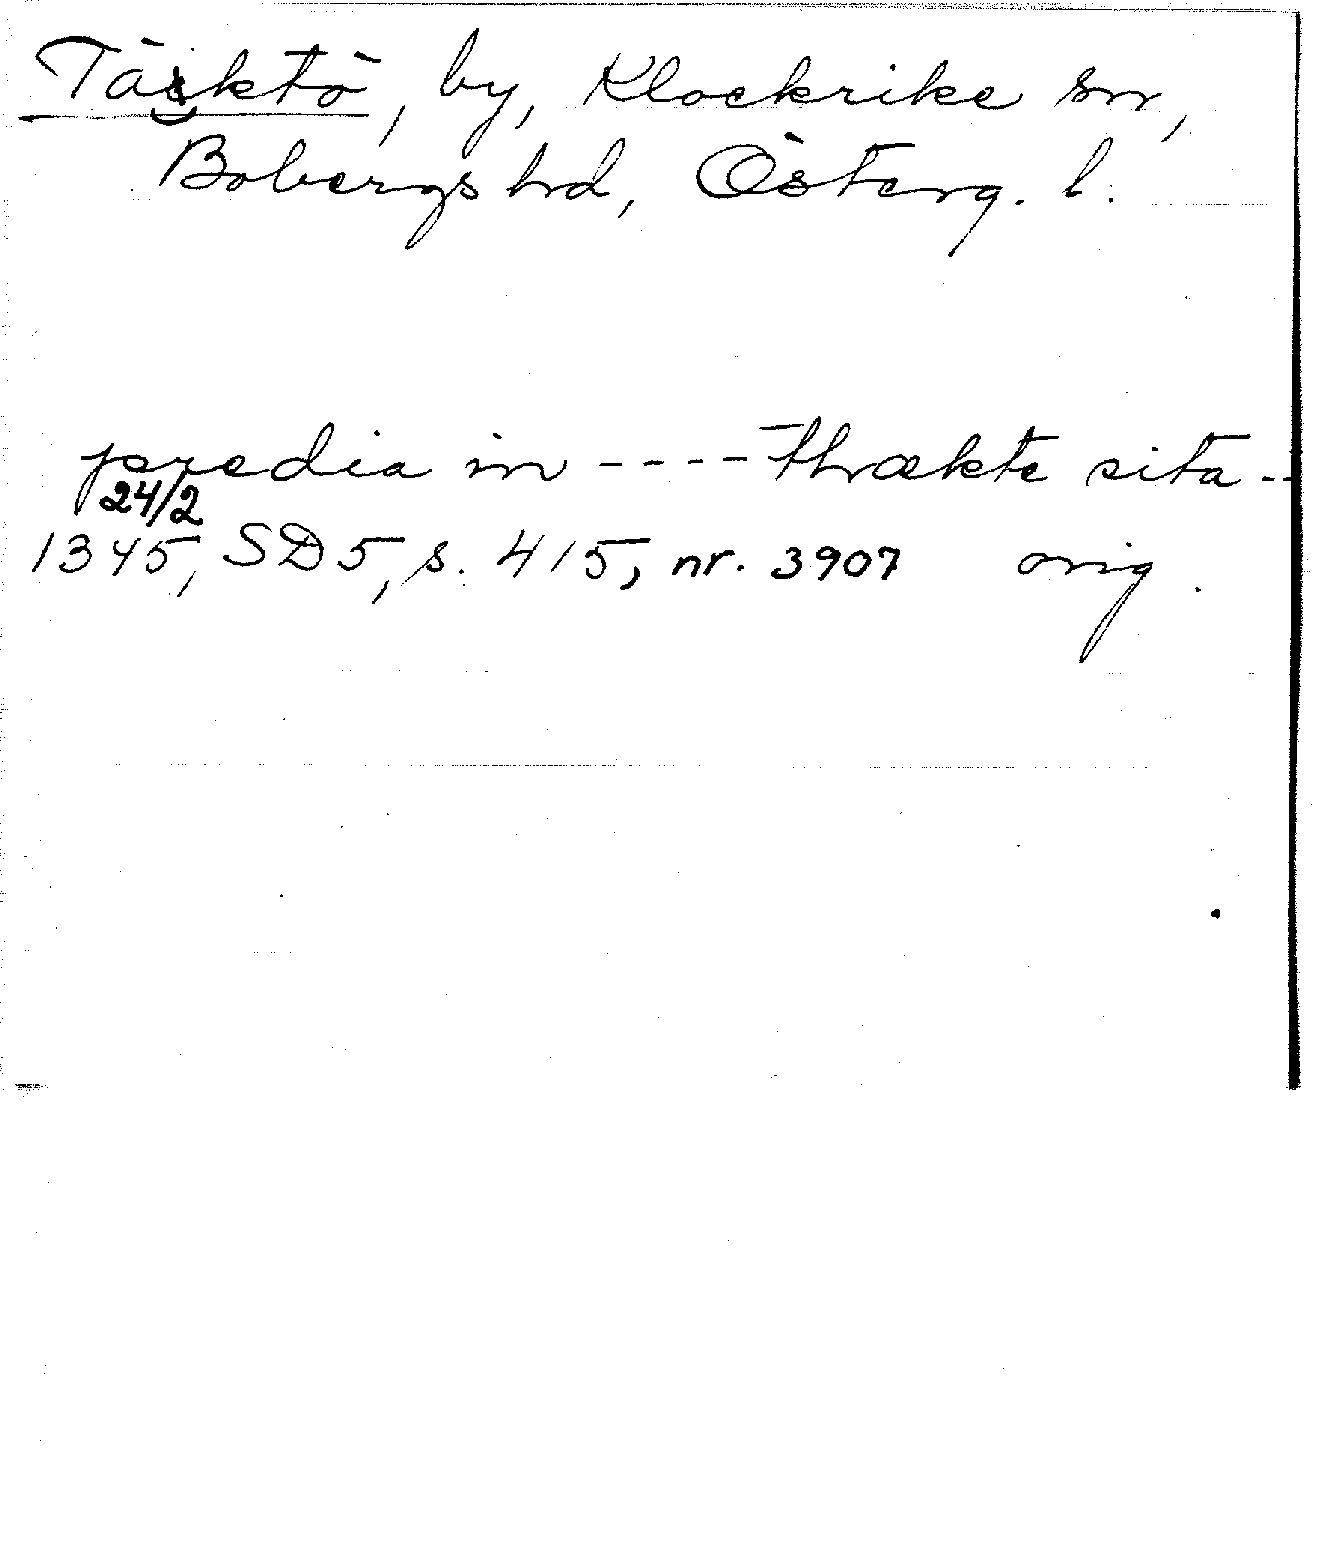 Täsktö, by, Klockrike sn,
Bobergs hd, Österg. l.
predia in ---- thrækte sita --
24/2
1345, SD 5, s. 415, nr. 3907 orig.